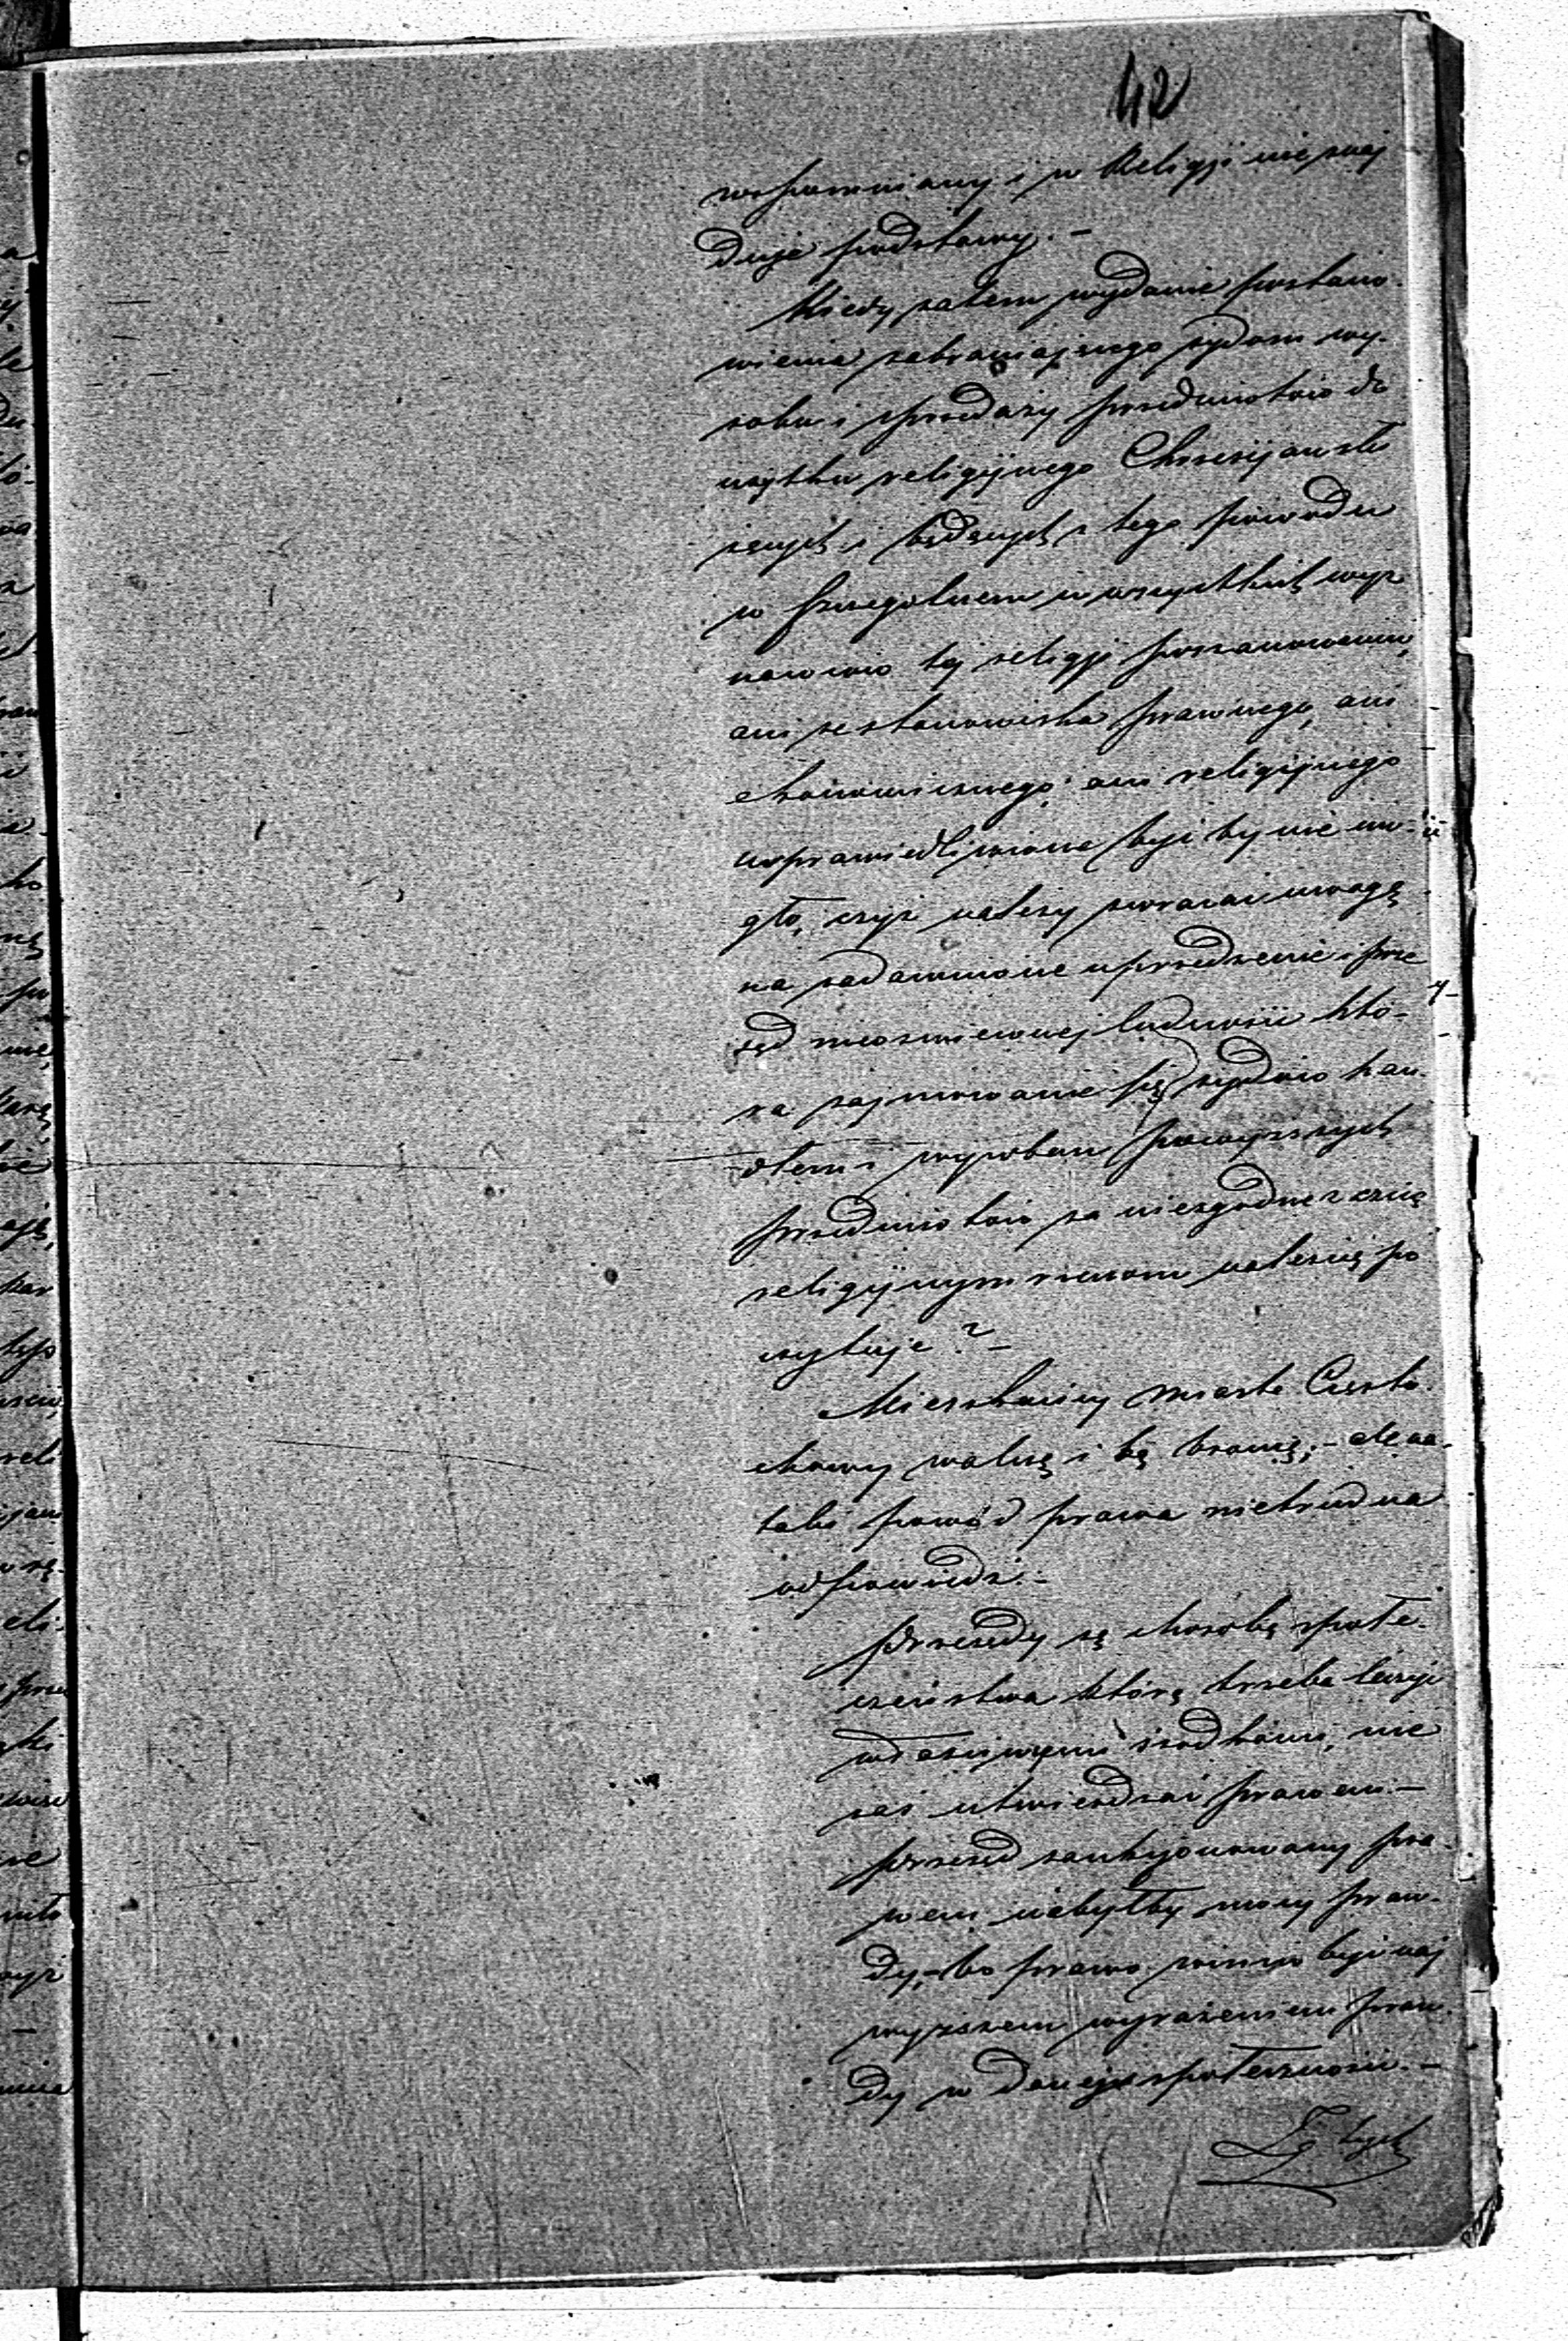 42
wspomniany i w Religji nie znaj
duje podstawy. –
Kiedy zatem wydanie postano-
wienia zabraniającego żydom wy-
robu i sprzedaży przedmiotów do
użytku religijnego Chrześcijan słu
żących i będących z tego powodu
w szczególnem u wszystkich wyz
nawców tej religji poszanowaniu,
ani ze stanowiska prawnego, ani
ekonomicznego, ani religijnego
usprawiedliwione być by nie mo-
gło, czyż należy zwracać uwagę
na zadawnione uprzedzenie i prze
sąd nieoświeconej ludności któ-
ra zajmowanie się żydów han-
dlem i wyrobem powyższych
przedmiotów za niezgodne z czcią
religijnym rzeczom należną po
czytuje? –
Mieszkańcy miasta Często-
chowy walczą i tą bronią; – ale na
taki powód prawa nietrudna
odpowiedź. –
Przesądy są chorobą społe-
czeństwa którą trzeba leczyć
właściwymi środkami, nie
zaś utwierdzać prawem. –
Przesąd sankcjonowany pra-
wem nabyłby mocy praw-
dy, – bo prawo winno być naj
wyższem wyrażeniem praw-
dy w danej społeczności. –